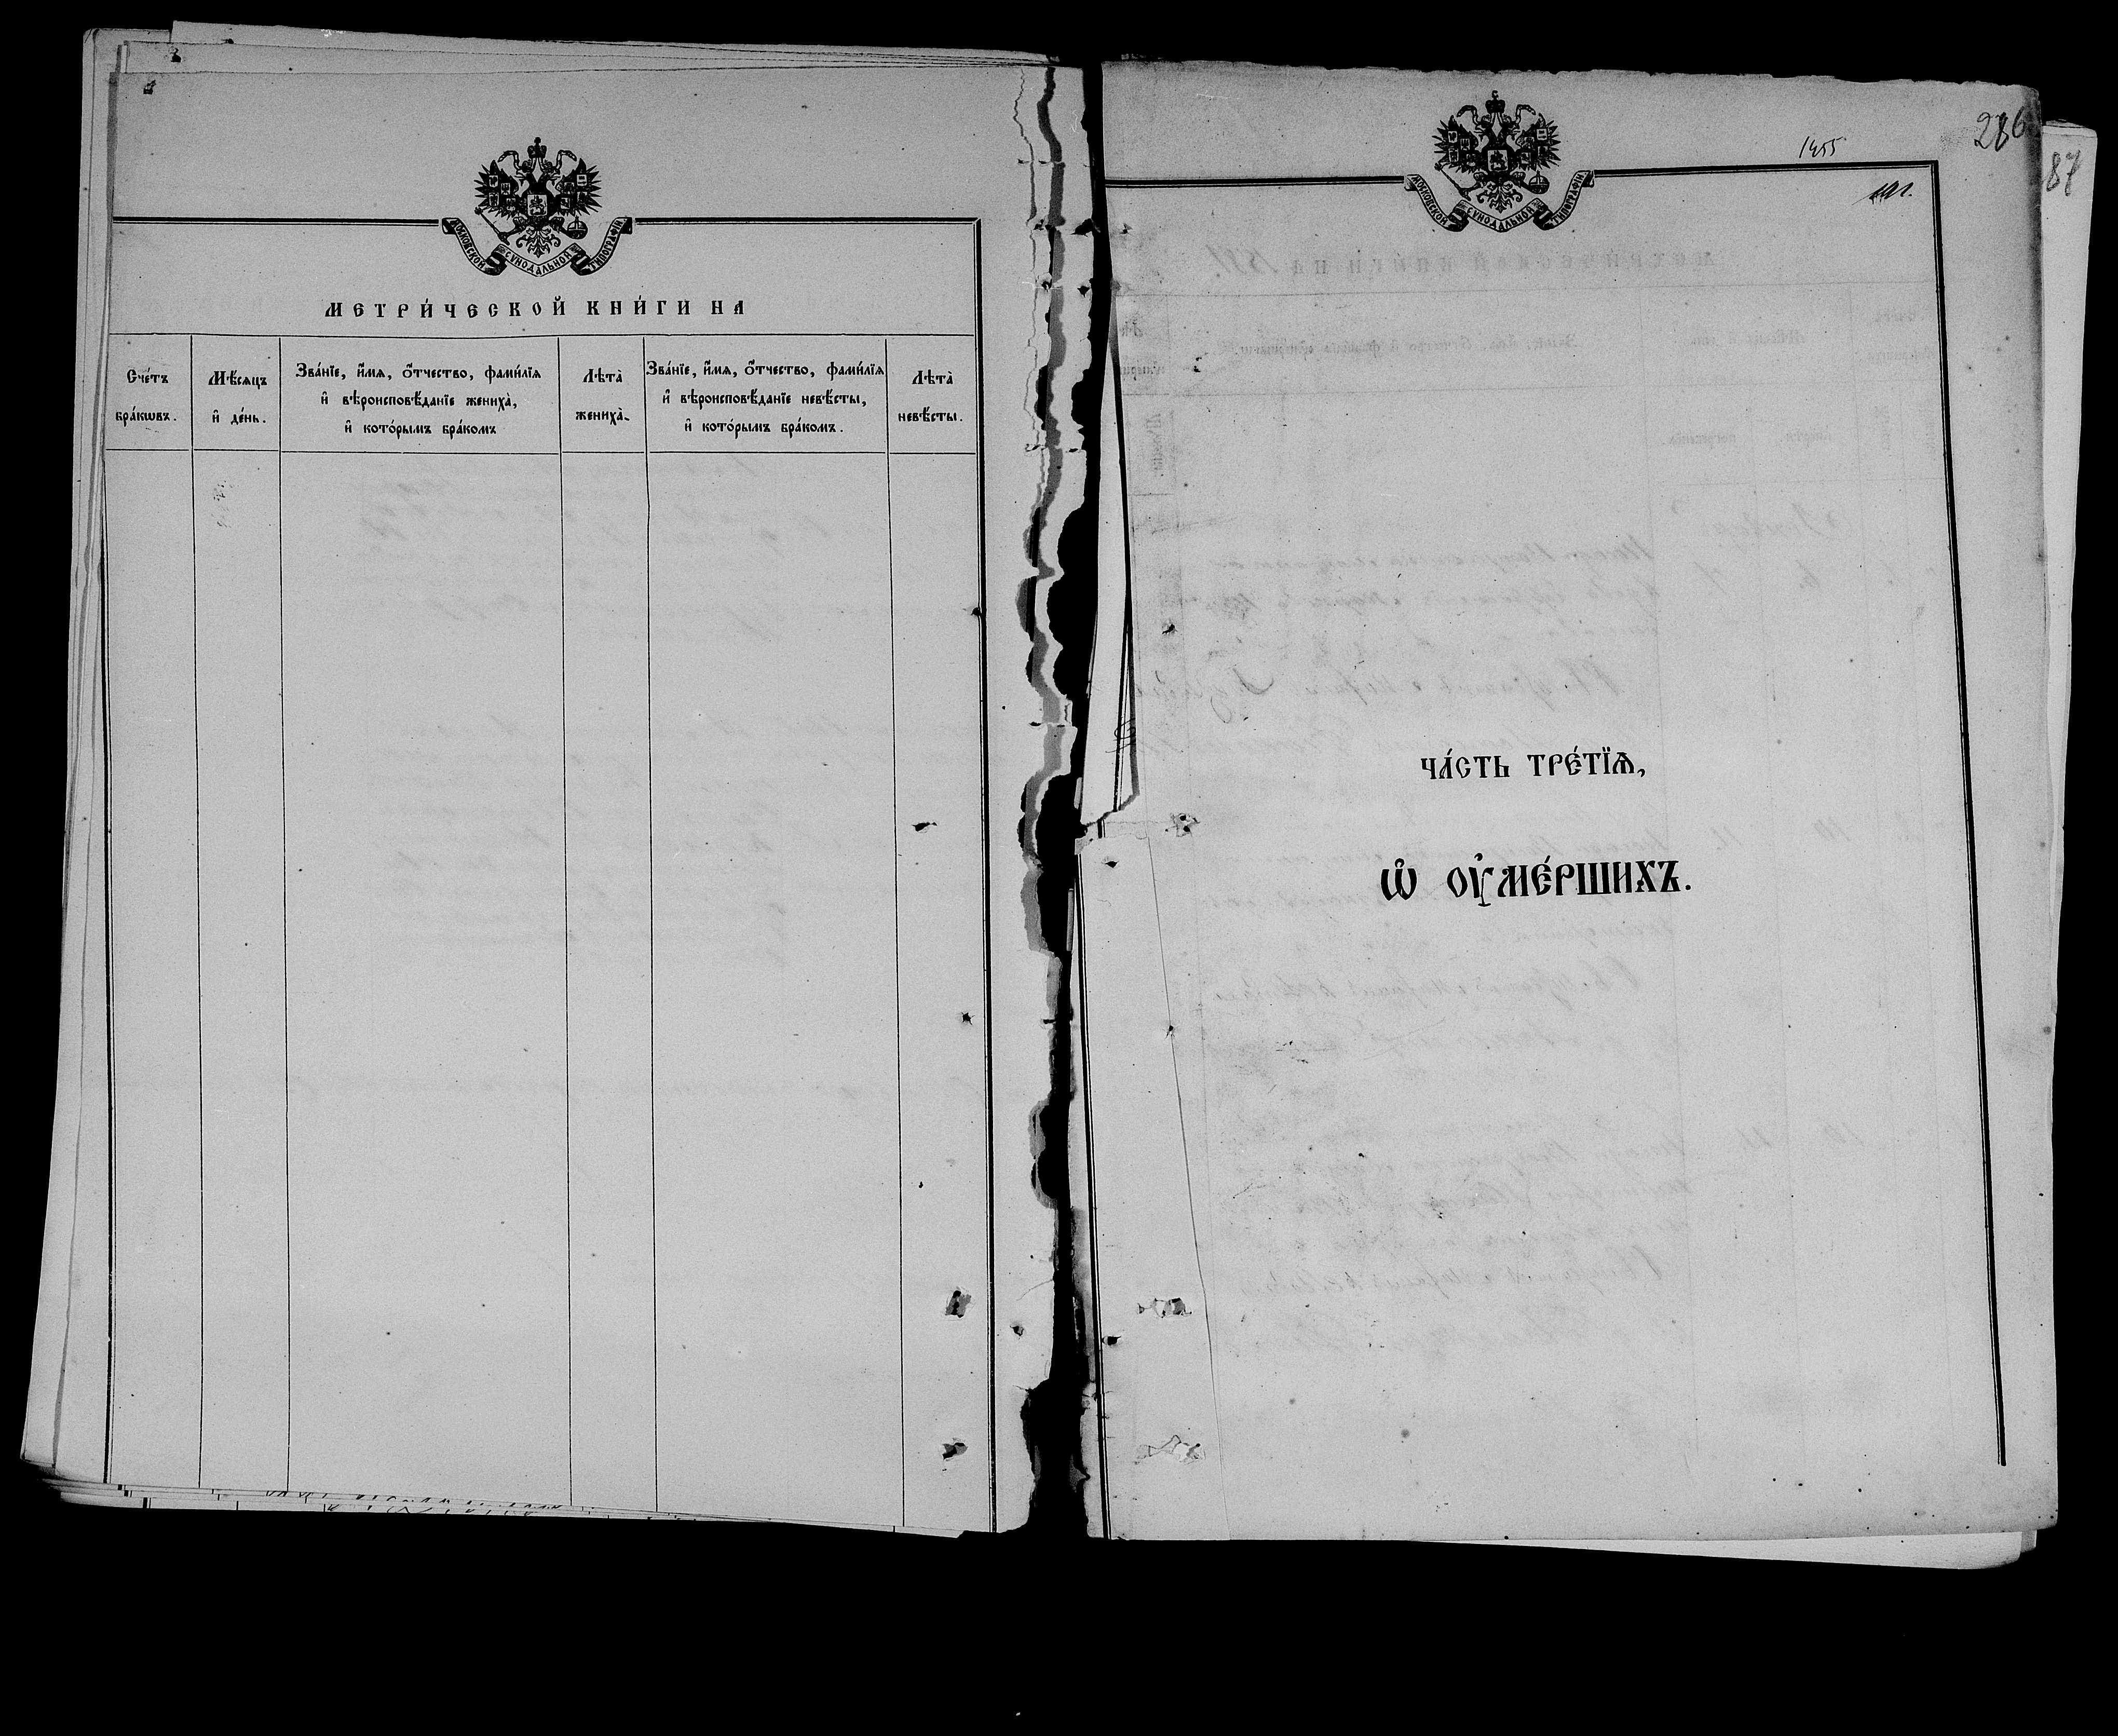 МОСКОВСКОЙ СУНОДАЛЬНОЙ ТИПОГРАФІИ
МЕТРИ́ЧЕСКОЙ КНИ́ГИ НА
Сче́тъ бра́кѡвъ.
Мѣ́сяцъ и҆ де́нь.
Зва́нїе, и҆́мѧ, о҆́тчество, фами́лїѧ
и҆ вѣроисповѣ́данїе жениха̀,
и҆ кото́рымъ бра́комъ
Лѣта̀ жениха̀.
Зва́нїе, и҆́мѧ, о҆́тчество, фами́лїѧ
и҆ вѣроисповѣ́данїе невѣ́сты,
и҆ кото́рымъ бра́комъ.
Лѣта̀ невѣ́сты.
286
87
1455
МОСКОВСКОЙ СУНОДАЛЬНОЙ ТИПОГРАФІИ
ЧА́СТЬ ТРЕ́ТЇѦ,
Ѽ ОУ҆МЕ́РШИХЪ.